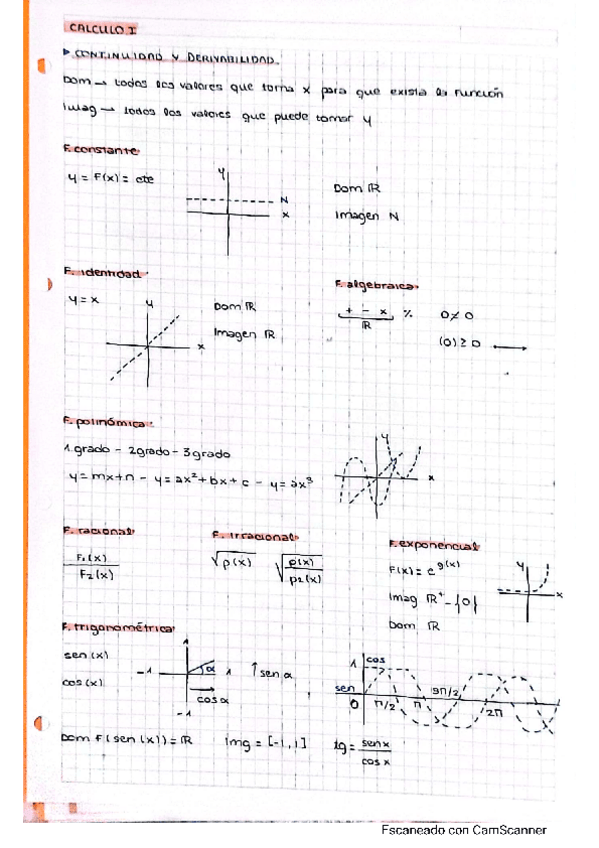 CALCULO I
▸ CONTINUIDAD Y DERIVABILIDAD.
Dom → todos los valores que toma x para que exista la función
Imag → todos los valores que puede tomar y
F. constante
y = F(x) = cte
y
N
x
Dom ℝ
Imagen N
F. identidad
y = x
y
x
Dom ℝ
Imagen ℝ
F. algebraica
+ - x
ℝ
%
0≠0
(0) ≥ 0 →
F. polinómica
1.grado - 2grado - 3grado
y = mx+n - y = ax² + bx + c - y = ax³
y
x
F. racional
F₁(x)
F₂(x)
F. irracional
√p(x)
√p(x)
p₂(x)
F. exponencial
F(x) = e^g(x)
Imag ℝ⁺ - {0}
Dom ℝ
y
x
F. trigonométrica
sen (x)
cos (x)
1
-1
α
1
↑ sen α
cos α
-1
1
cos
sen
0
π/2
π
3π/2
2π
Dom F(sen(x)) = ℝ
Img = [-1, 1]
tg = sen x
cos x
Escaneado con CamScanner